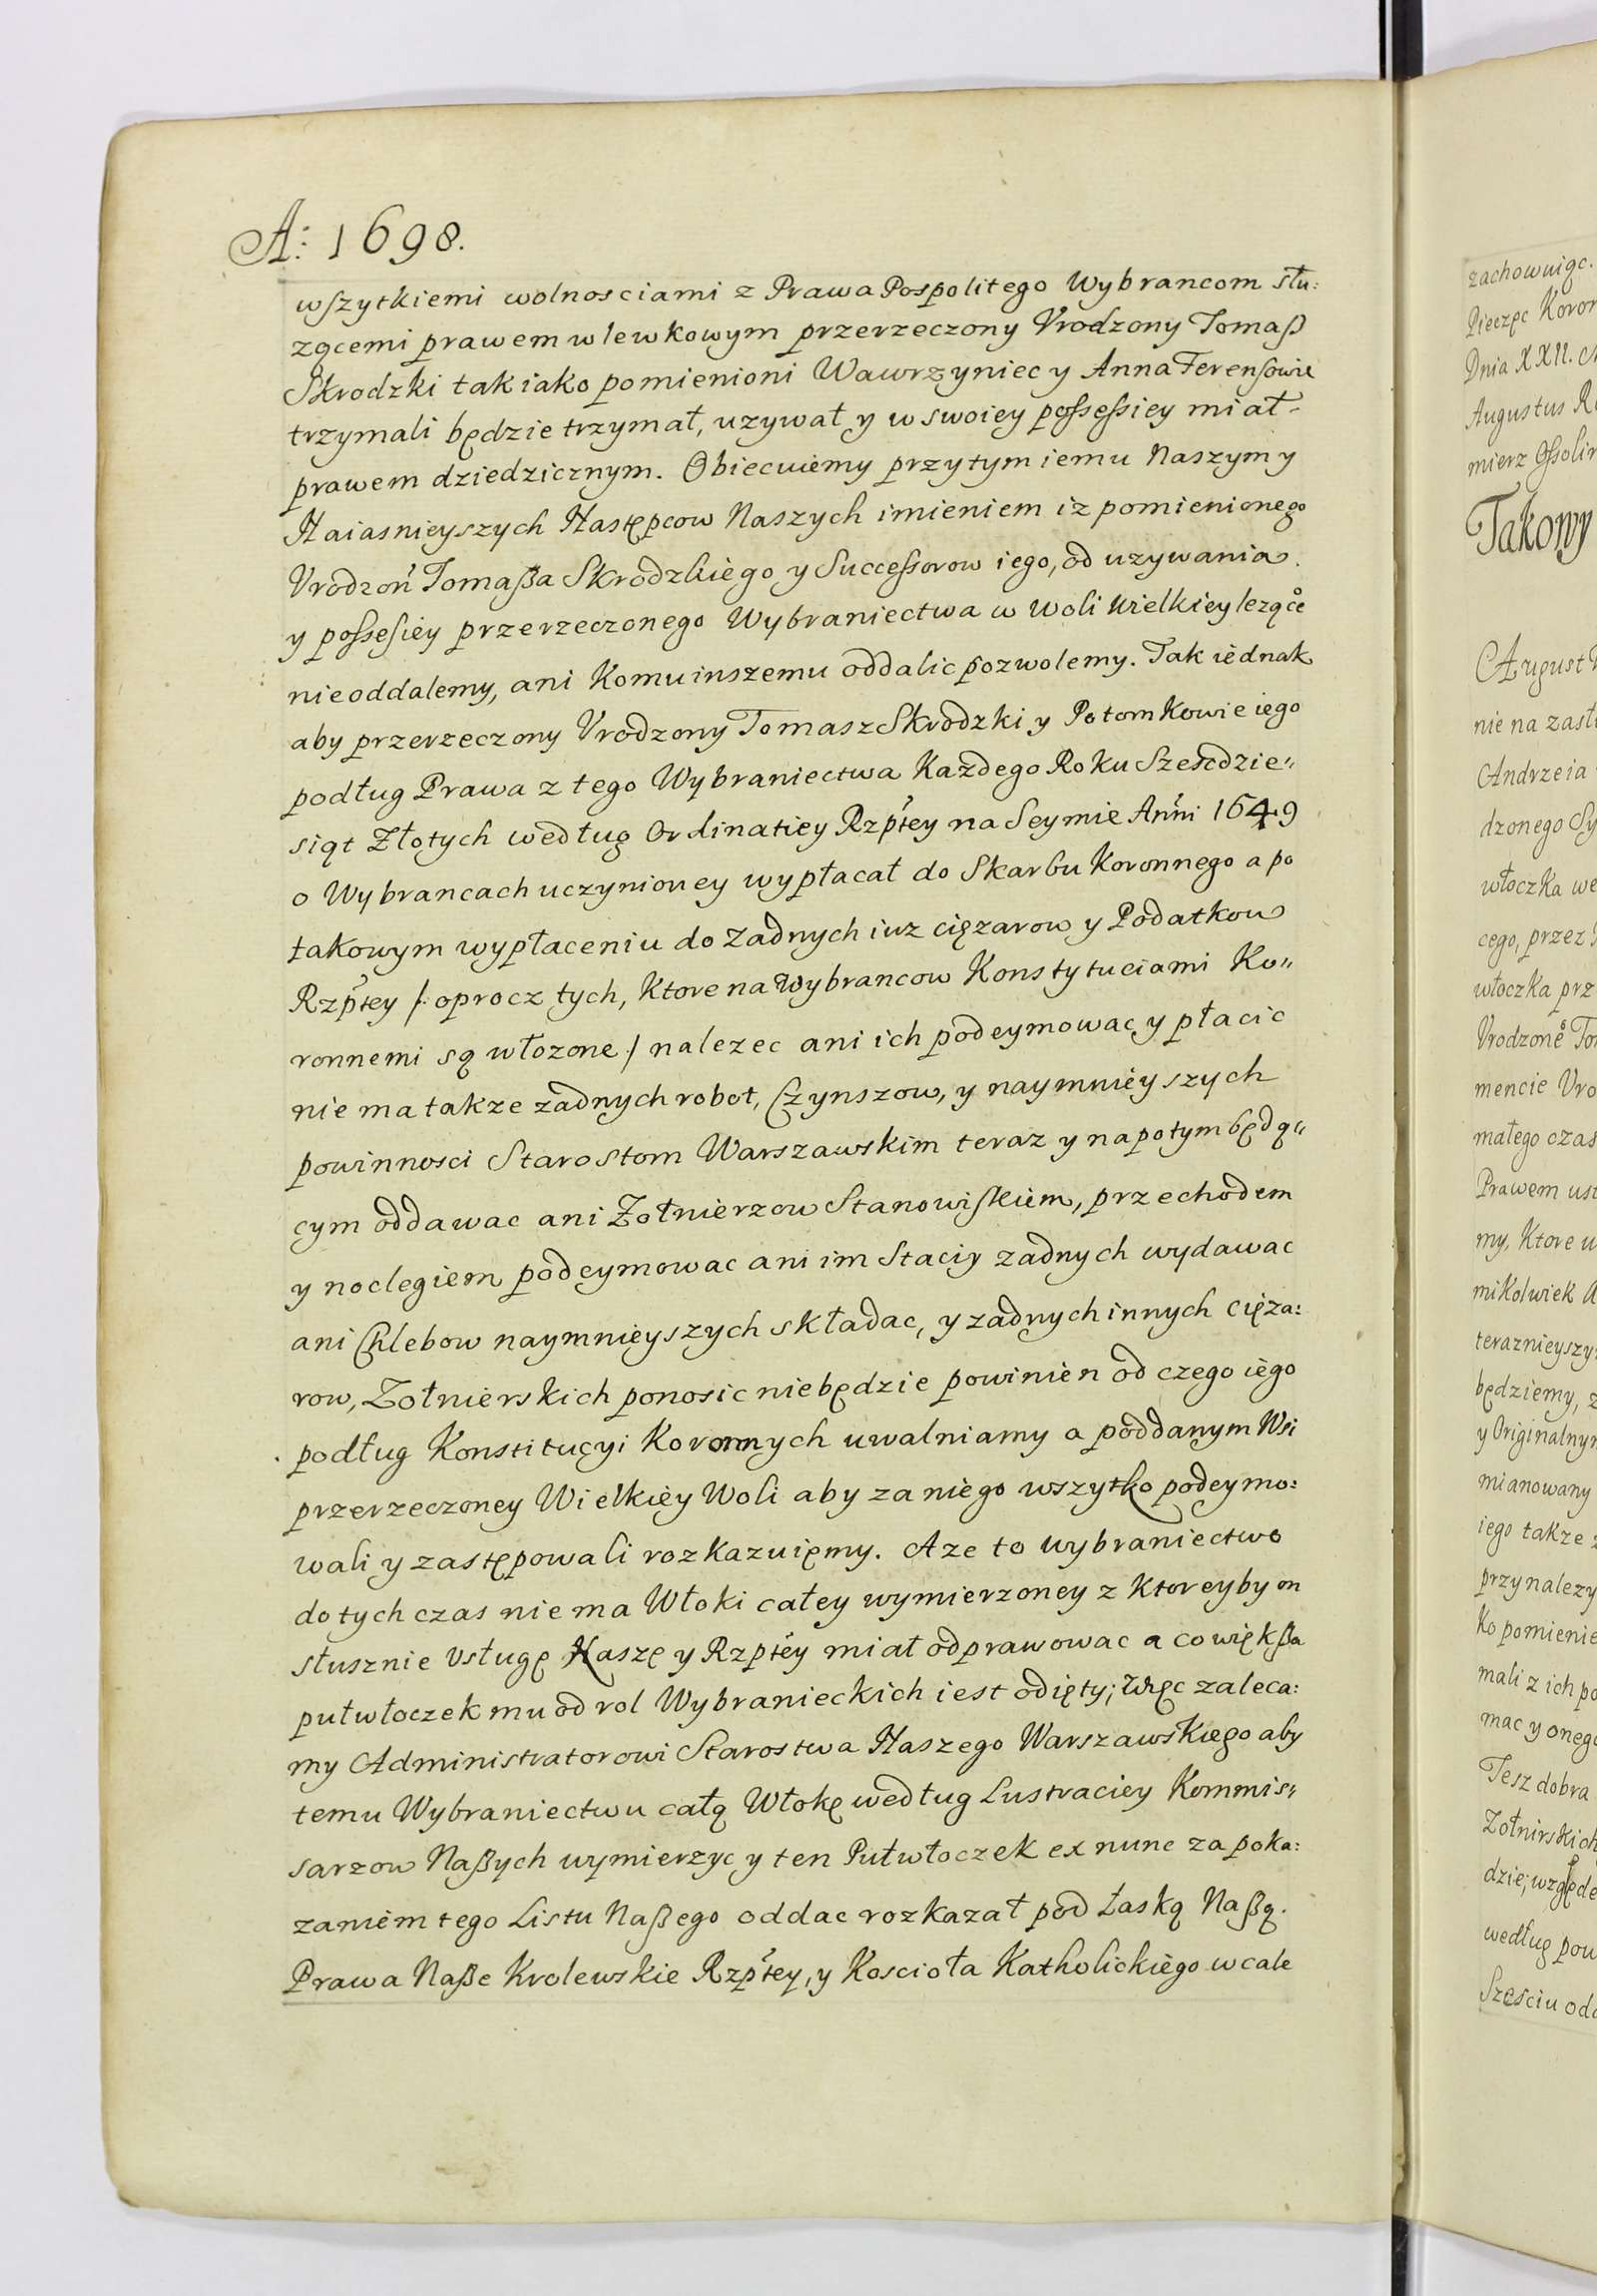 A: 1698.
wszytkiemi wolnosciami z Prawa Pospolitego Wybrancom słu:
zącemi prawem wlewkowym przerzeczony Vrodzony Tomaß
Skrodzki tak iako pomienioni Wawrzyniec y Anna Ferensowie
trzymali będzie trzymał, uzywał y w swoiey possessiey miał
prawem dziedzicznym. Obiecuiemy przytym iemu Naszym y
Naiasnieyszych Następcow Naszych imieniem iz pomienionego
Vrodzoń Tomaßa Skrodzkiego y Successorow iego, od uzywania
y possesiey przerzeczonego Wybraniectwa w Woli Wielkiey lezące
nie oddalemy, ani Komu inszemu oddalic pozwolemy. Tak iednak
aby przerzeczony Vrodzony Tomasz Skrodzki y Potomkowie iego
podług Prawa z tego Wybraniectwa Kazdego Roku Szescdzie„
siąt Złotych według Ordinatiey Rzptey na Seymie Anni 1649
o Wybrancach uczynioney wypłacał do Skarbu Koronnego a po
takowym wypłaceniu do zadnych iuz cięzarow y Podatkow
Rzptey /: oprocz tych, Ktore na Wybrancow Konstytuciami Ko„
ronnemi są włozone :/ nalezec ani ich podeymowac y płacic
nie ma takze zadnych robot, Czynszow, y naymnieyszych
powinnosci Starostom Warszawskim teraz y napotym będą„
cym oddawac ani Zołnierzow Stanowiskiem, przechodem
y noclegiem podeymowac ani im Staciy zadnych wydawac
ani Chlebow naymnieyszych składac, y zadnych innych cięza:
row, Zołnierskich ponosic niebędzie powinien od czego iego
podług Konstitucyi Koronnych uwalniamy a poddanym Wsi
przerzeczoney Wielkiey Woli aby za niego wszytko podeymo:
wali y zastępowali rozkazuięmy. A ze to wybraniectwo
do tych czas nie ma Włoki całey wymierzoney z Ktoreyby on
słusznie Vsługę Naszę y Rzptey miał odprawowac a co większa
pułwłoczek mu od rol Wybranieckich iest odięty; Więc zaleca:
my Administratorowi Starostwa Naszego Warszawskiego aby
temu Wybraniectwu całą Włokę według Lustraciey Kommis„
sarzow Naßych wymierzyc y ten Pułwłoczek ex nunc za poka:
zaniem tego Listu Naßego oddac rozkazał pod Łaską Naßą.
Prawa Naße Krolewskie Rzptey, y Koscioła Katholickiego wcale
zachowuiąc.
Pieczęc Koron
Dnia XXII.
Augustus
mierz Ossolin
Takowy
August
nie na zasłu
Andrzeia
dzonego Sy
włoczka we
cego, przez
włoczka prz
Vrodzone Tom
mencie Vro
małego czas
Prawem ust
my, Ktore w
mikolwiek
teraznieyszy
będziemy, z
y Originalnym
mianowany
iego takze
przynalezy
ko pomienie
mali z ich po
mac y onego
Tesz dobra
Zołnirskich
dzie; względe
według pow
Szesciu odd